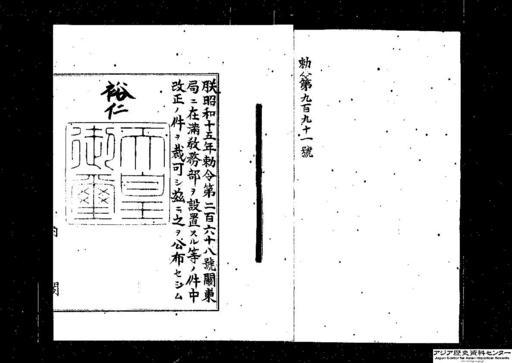 勅令第九百九十一號
朕昭和十五年勅令第二百六十八號關東
局ニ在滿敎務部ヲ設置スル等ノ件中
改正ノ件ヲ裁可シ茲ニ之ヲ公布セシム
裕仁
天皇
御璽
アジア歴史資料センター
Japan Center for Asian Historical Records